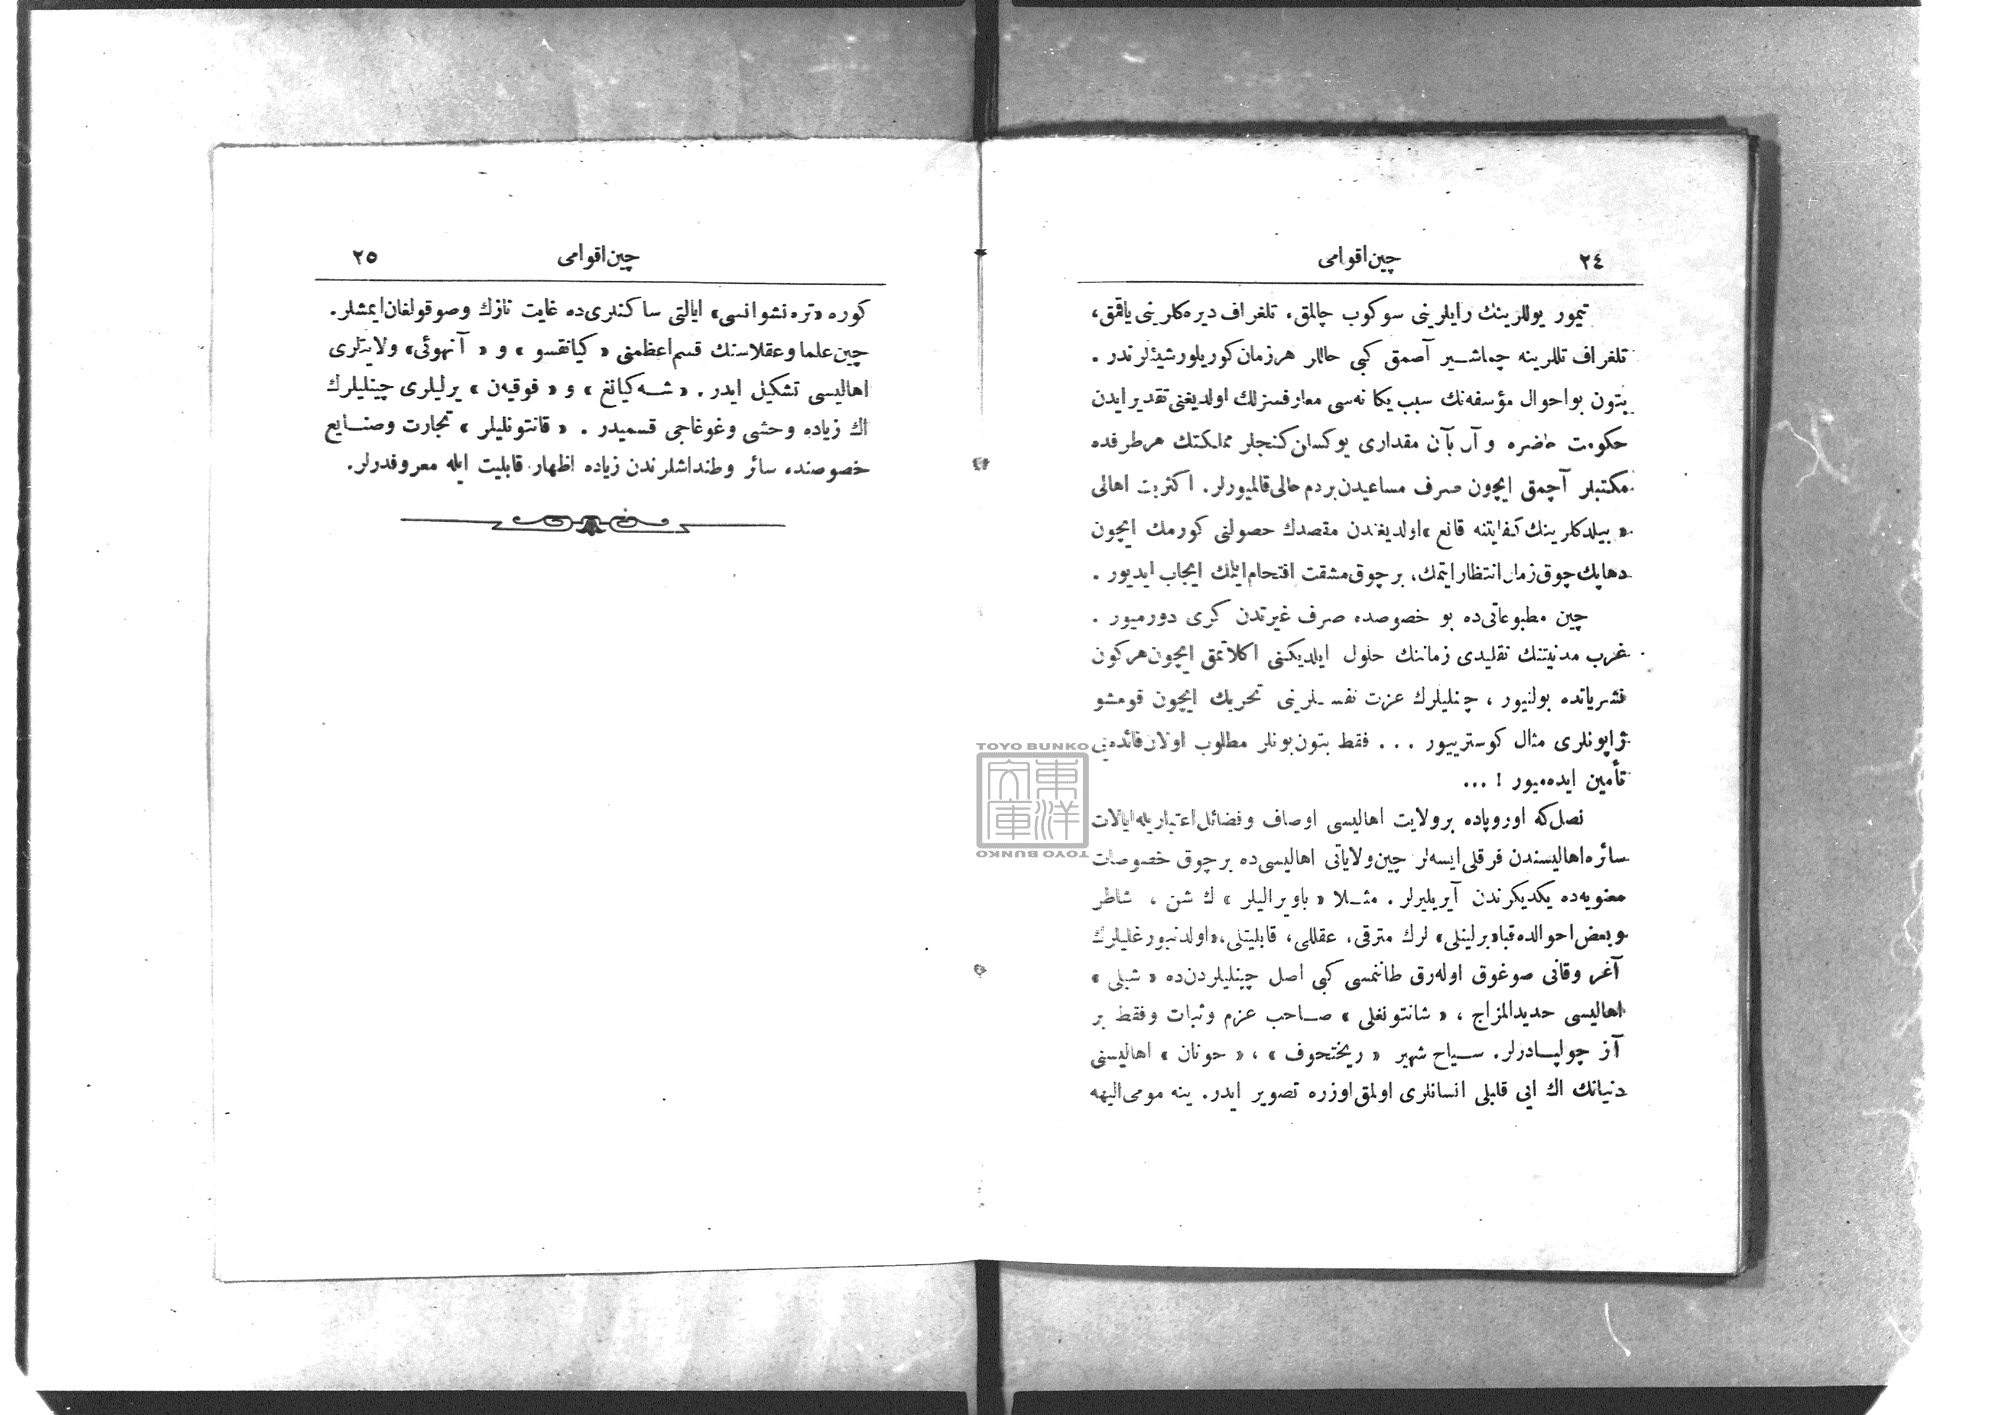 ٢٤
چین اقوامی
تیمور یوللرینك رایلرینی سوكوب چالمق، تلغراف دیره‌كلرینی یاقمق،
تلغراف تللرینه چماشیر آصمق كبی حاللر هر زمان كوریلور شیئلرندر .
بتون بواحوال مؤسفه‌نك سبب یكانه‌سی معارفسزلك اولدیغنی تقدیر ایدن
حكومت حاضره و آز بآن مقداری یوكسلن كنجلر مملكتك هر طرفده
مكتبلر آچمق ایچون صرف مساعیدن بر دم خالی قالمیورلر. اكثریت اهالی
« بیلدكلرینك كفایتنه قانع » اولدیغندن مقصدك حصولنی كورمك ایچون
دها پك چوق زمان انتظار ایتمك، بر چوق مشقت اقتحام ایتمك ایجاب ایدیور .
چین مطبوعاتی ده بو خصوصده صرف غیرتدن كری دورمیور .
غرب مدنیتنك تقلیدی زماننك حلول ایلدیكنی اكلاتمق ایچون هركون
نشریاتده بولنیور ، چنلیلرك عزت نفسلرینی تحریك ایچون قومشو
ژاپونلری مثال كوستریبور ... فقط بتون بونلر مطلوب اولان فائده‌یی
تأمین ایده‌میور ! ...
نصل كه اوروپاده بر ولایت اهالیسی اوصاف و فضائل اعتباریله ایالات
سائره اهالیسندن فرقلی ایسه‌لر چین ولایاتی اهالیسی ده بر چوق خصوصات
معنویه‌ده یكدیكرندن آیریلیرلر . مثلا « باویرالیلر » ك شن ، شاطر
و بعض احوالده قبا «برلینلی» لرك مترقی، عقللی، قابلیتلی، «اولدنبورغلیلرك
آغر و قانی صوغوق اوله‌رق طاننمسی كبی اصل چینلیلردن ده « شبلی »
اهالیسی حدیدالمزاج ، « شانتونغلی » صاحب عزم و ثبات و فقط بر
آز چولپادرلر. سیاح شهیر « ریختحوف » ، « حونان » اهالیسنی
دنیانك اك ایی قلبلی انسانلری اولمق اوزره تصویر ایدر. ینه مومی الیهه
چین اقوامی
٢٥
كوره «تره‌نشوانسی» ایالتی ساكنلری ده غایت نازك و صوقولغان ایمشلر.
چین علما و عقلاسنك قسم اعظمنی « كیانقسو » و « آنهوئی» ولایتلری
اهالیسی تشكیل ایدر . « شه‌كیانغ » و « فوقیه‌ن » یرلیلری چینلیلرك
اك زیاده وحشی و غوغاجی قسمیدر . « قانتونلیلر » تجارت و صنایع
خصوصنده سائر وطنداشلرندن زیاده اظهار قابلیت ایله معروفدرلر.
TOYO BUNKO
東洋文庫
TOYO BUNKO